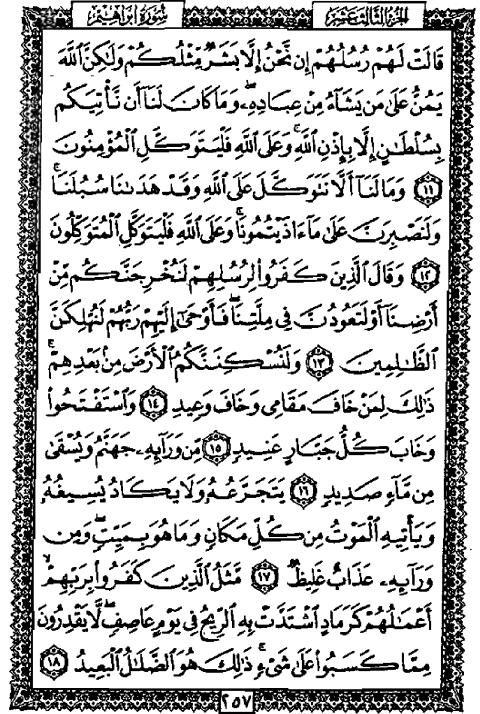 الجزء الثالث عشر
سورة ابراهيم
قَالَتْ لَهُمْ رُسُلُهُمْ إِن نَّحْنُ إِلَّا بَشَرٌ مِّثْلُكُمْ وَلَٰكِنَّ ٱللَّهَ
يَمُنُّ عَلَىٰ مَن يَشَآءُ مِنْ عِبَادِهِۦۖ وَمَا كَانَ لَنَآ أَن نَّأْتِيَكُم
بِسُلْطَٰنٍ إِلَّا بِإِذْنِ ٱللَّهِۚ وَعَلَى ٱللَّهِ فَلْيَتَوَكَّلِ ٱلْمُؤْمِنُونَ
۝١١ وَمَا لَنَآ أَلَّا نَتَوَكَّلَ عَلَى ٱللَّهِ وَقَدْ هَدَىٰنَا سُبُلَنَاۚ
وَلَنَصْبِرَنَّ عَلَىٰ مَآ ءَاذَيْتُمُونَاۚ وَعَلَى ٱللَّهِ فَلْيَتَوَكَّلِ ٱلْمُتَوَكِّلُونَ
۝١٢ وَقَالَ ٱلَّذِينَ كَفَرُوا۟ لِرُسُلِهِمْ لَنُخْرِجَنَّكُم مِّنْ
أَرْضِنَآ أَوْ لَتَعُودُنَّ فِى مِلَّتِنَاۖ فَأَوْحَىٰٓ إِلَيْهِمْ رَبُّهُمْ لَنُهْلِكَنَّ
ٱلظَّٰلِمِينَ ۝١٣ وَلَنُسْكِنَنَّكُمُ ٱلْأَرْضَ مِنۢ بَعْدِهِمْۚ
ذَٰلِكَ لِمَنْ خَافَ مَقَامِى وَخَافَ وَعِيدِ ۝١٤ وَٱسْتَفْتَحُوا۟
وَخَابَ كُلُّ جَبَّارٍ عَنِيدٍ ۝١٥ مِّن وَرَآئِهِۦ جَهَنَّمُ وَيُسْقَىٰ
مِن مَّآءٍ صَدِيدٍ ۝١٦ يَتَجَرَّعُهُۥ وَلَا يَكَادُ يُسِيغُهُۥ
وَيَأْتِيهِ ٱلْمَوْتُ مِن كُلِّ مَكَانٍ وَمَا هُوَ بِمَيِّتٍۖ وَمِن
وَرَآئِهِۦ عَذَابٌ غَلِيظٌ ۝١٧ مَّثَلُ ٱلَّذِينَ كَفَرُوا۟ بِرَبِّهِمْۖ
أَعْمَٰلُهُمْ كَرَمَادٍ ٱشْتَدَّتْ بِهِ ٱلرِّيحُ فِى يَوْمٍ عَاصِفٍۖ لَّا يَقْدِرُونَ
مِمَّا كَسَبُوا۟ عَلَىٰ شَىْءٍۚ ذَٰلِكَ هُوَ ٱلضَّلَٰلُ ٱلْبَعِيدُ ۝١٨
٢٥٧